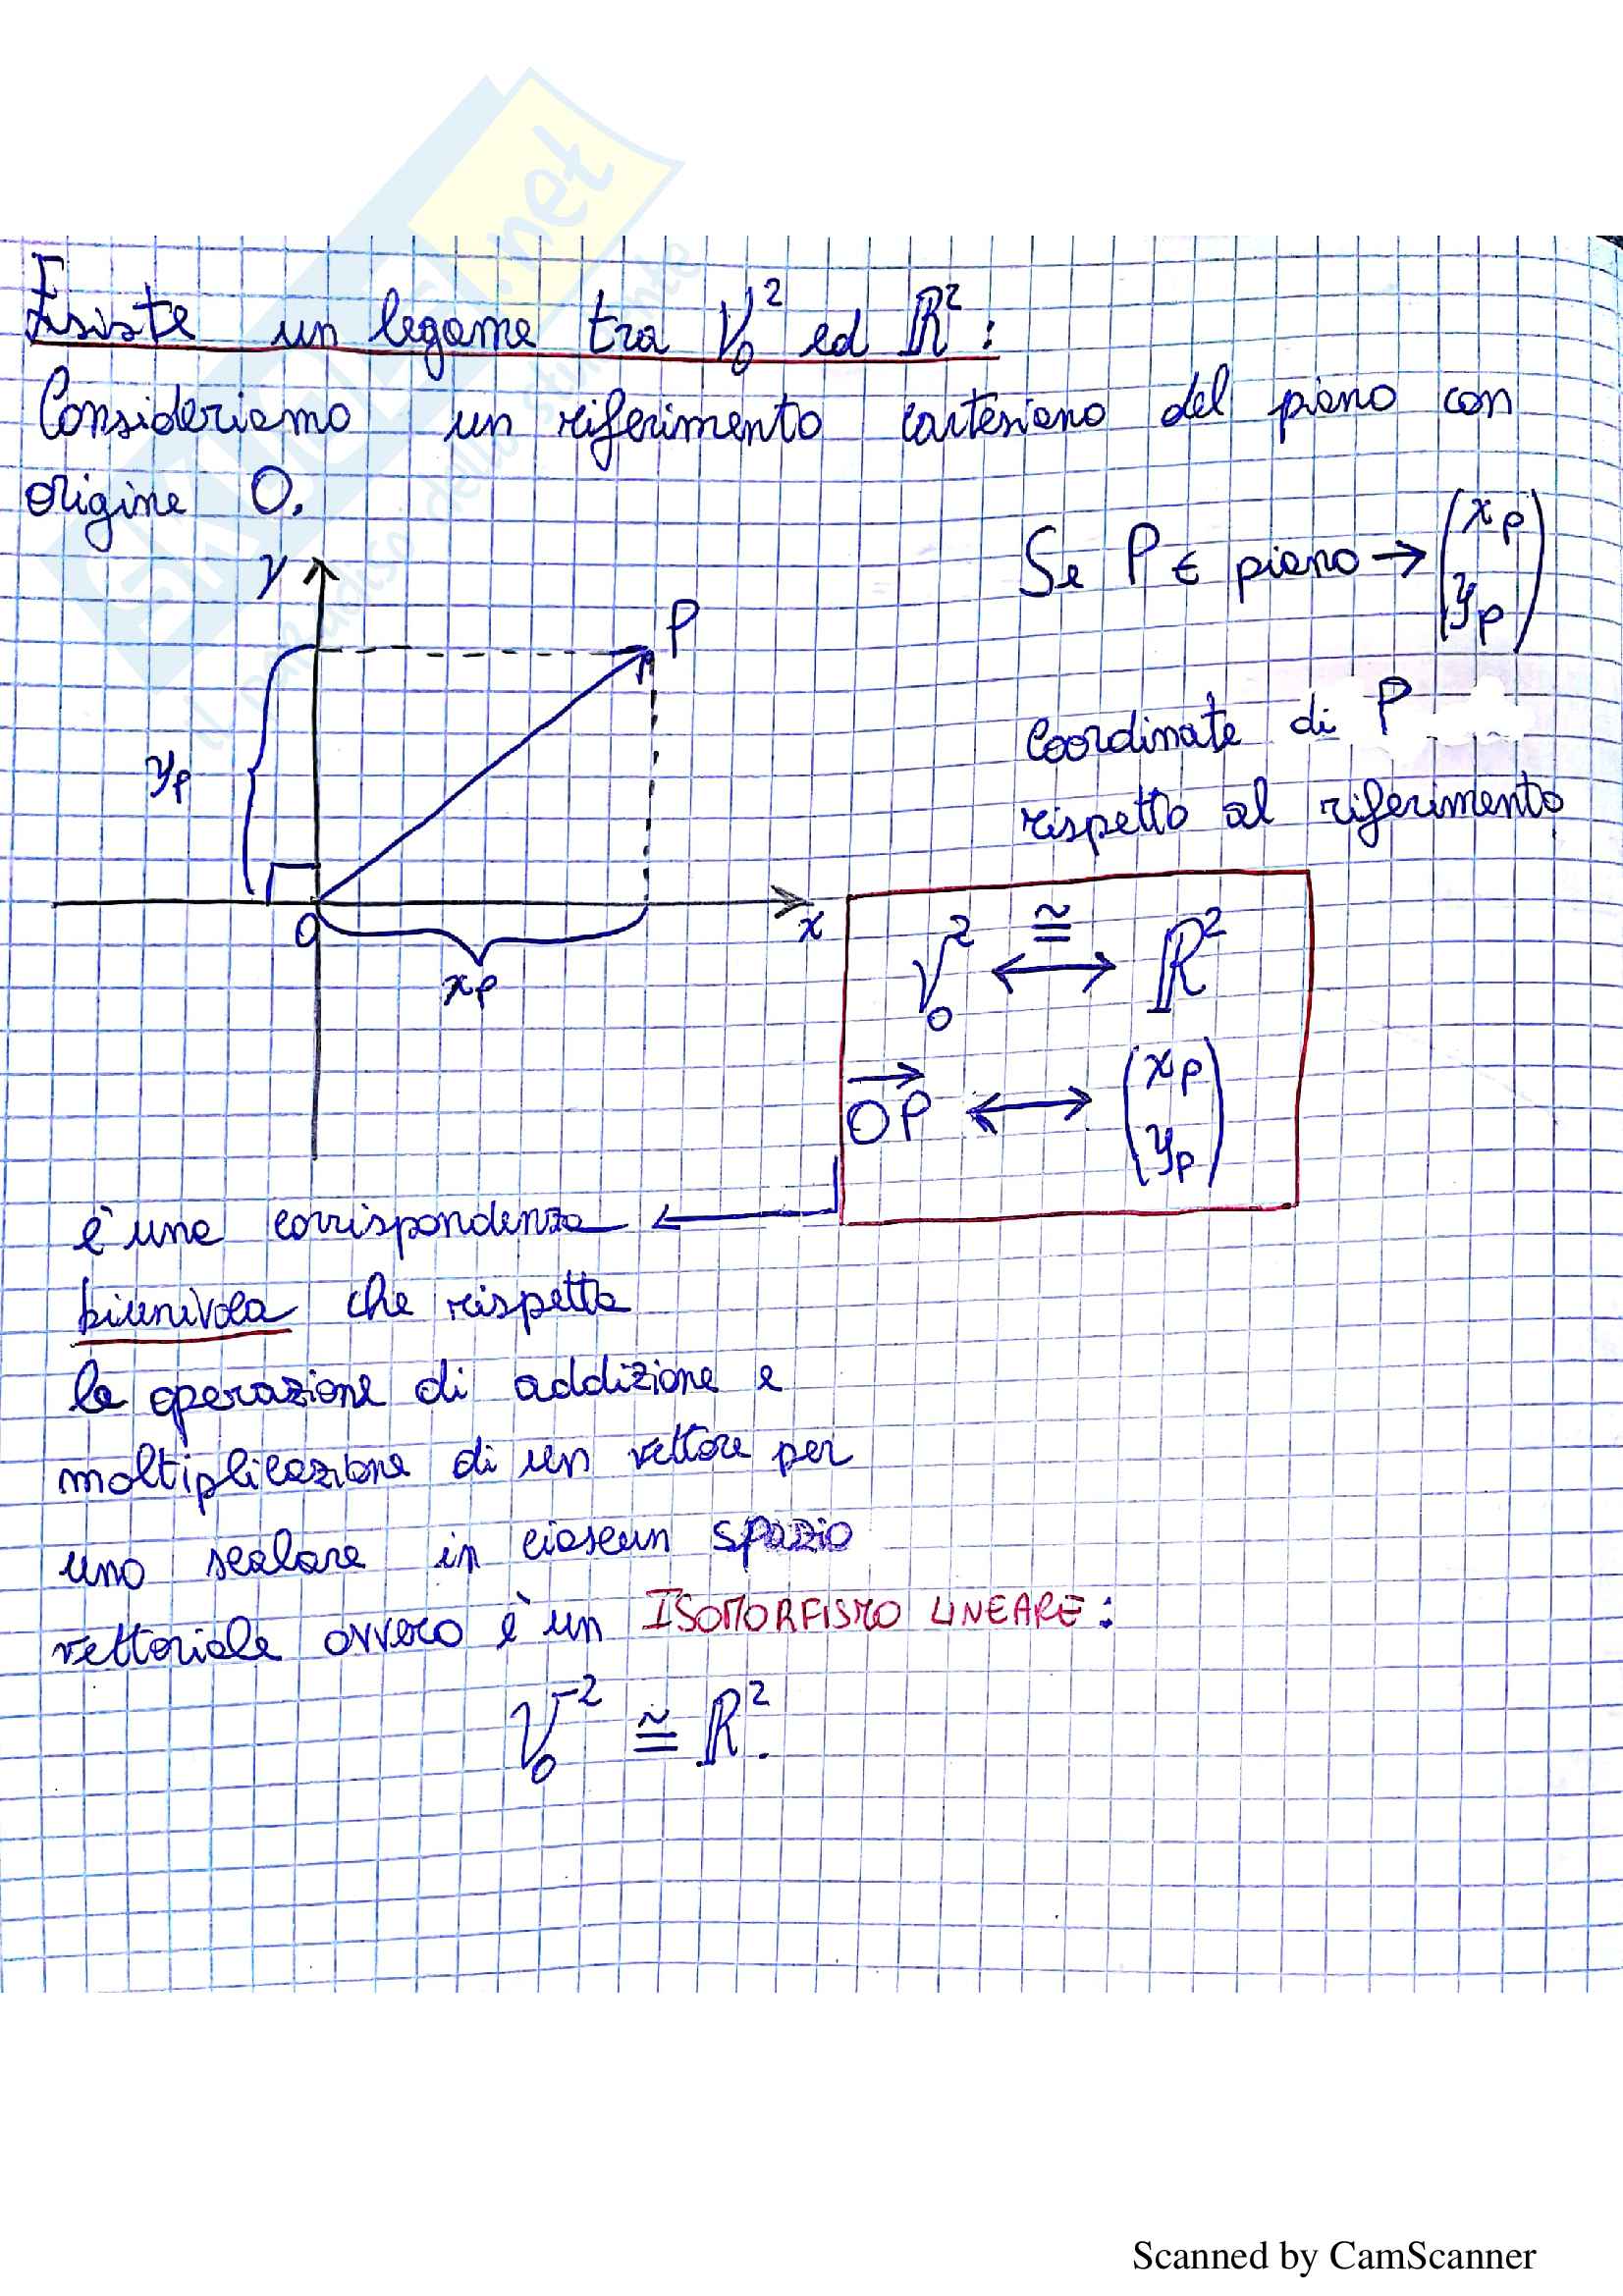 Esiste un legame tra V₀² ed ℝ²:
Consideriamo un riferimento cartesiano del piano con
origine O.
Se P ∈ piano → (x_P y_P)
y
P
coordinate di P
y_P
rispetto al riferimento
O
x
x_P
V₀² ≅ ↔ ℝ²
OP ↔ (x_P y_P)
è una corrispondenza
biunivoca che rispetta
le operazione di addizione e
moltiplicazione di un vettore per
uno scalare in ciascun spazio
vettoriale ovvero è un ISOMORFISMO LINEARE:
V₀² ≅ ℝ².
Skuola.net
il paradiso dello studente
Scanned by CamScanner